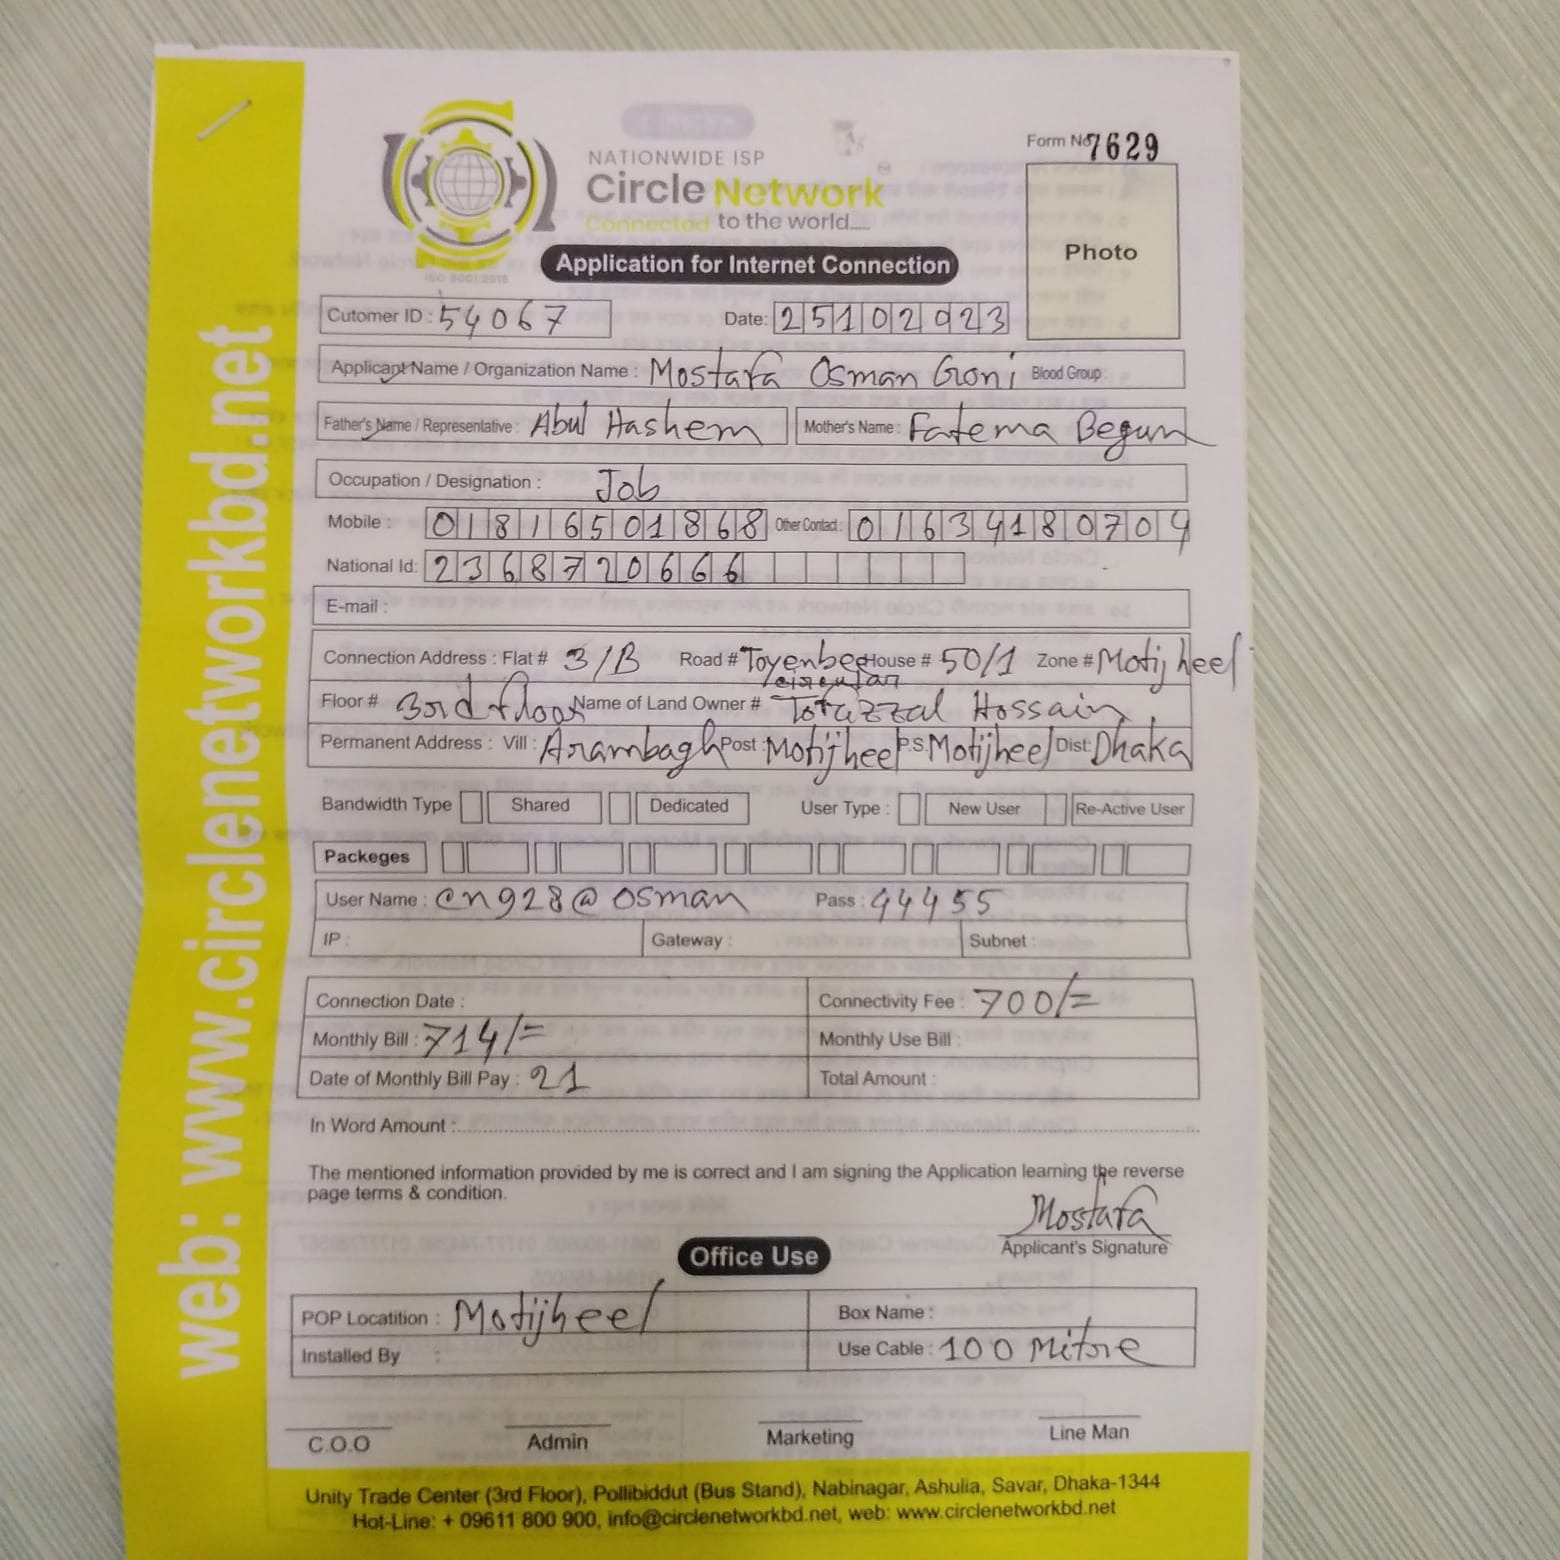 web: www.circlenetworkbd.net
NATIONWIDE ISP
Circle Network
Connected to the world.....
ISO 9001:2015
Form No 7629
Photo
Application for Internet Connection
Cutomer ID : 54067 Date: 25102023
Applicant Name / Organization Name : Mostafa Osman Goni Blood Group :
Father's Name / Representative : Abul Hashem Mother's Name : Fatema Begum
Occupation / Designation : Job
Mobile : 01816501868 Other Contact : 01634180704
National Id: 2368720666
E-mail :
Connection Address : Flat # 3/B Road # Toyenbee circular House # 50/1 Zone # Motijheel
Floor # 3rd floor Name of Land Owner # Tofazzal Hossain
Permanent Address : Vill : Arambagh Post : Motijheel P.S. Motijheel Dist: Dhaka
Bandwidth Type Shared Dedicated User Type : New User Re-Active User
Packeges
User Name : cn928@osman Pass : 44455
IP : Gateway : Subnet :
Connection Date : Connectivity Fee : 700/=
Monthly Bill : 714/= Monthly Use Bill :
Date of Monthly Bill Pay : 21 Total Amount :
In Word Amount :
The mentioned information provided by me is correct and I am signing the Application learning the reverse
page terms & condition.
Mostafa
Applicant's Signature
Office Use
POP Locatition : Motijheel Box Name :
Installed By : Use Cable : 100 Mitre
C.O.O Admin Marketing Line Man
Unity Trade Center (3rd Floor), Pollibiddut (Bus Stand), Nabinagar, Ashulia, Savar, Dhaka-1344
Hot-Line: + 09611 800 900, info@circlenetworkbd.net, web: www.circlenetworkbd.net